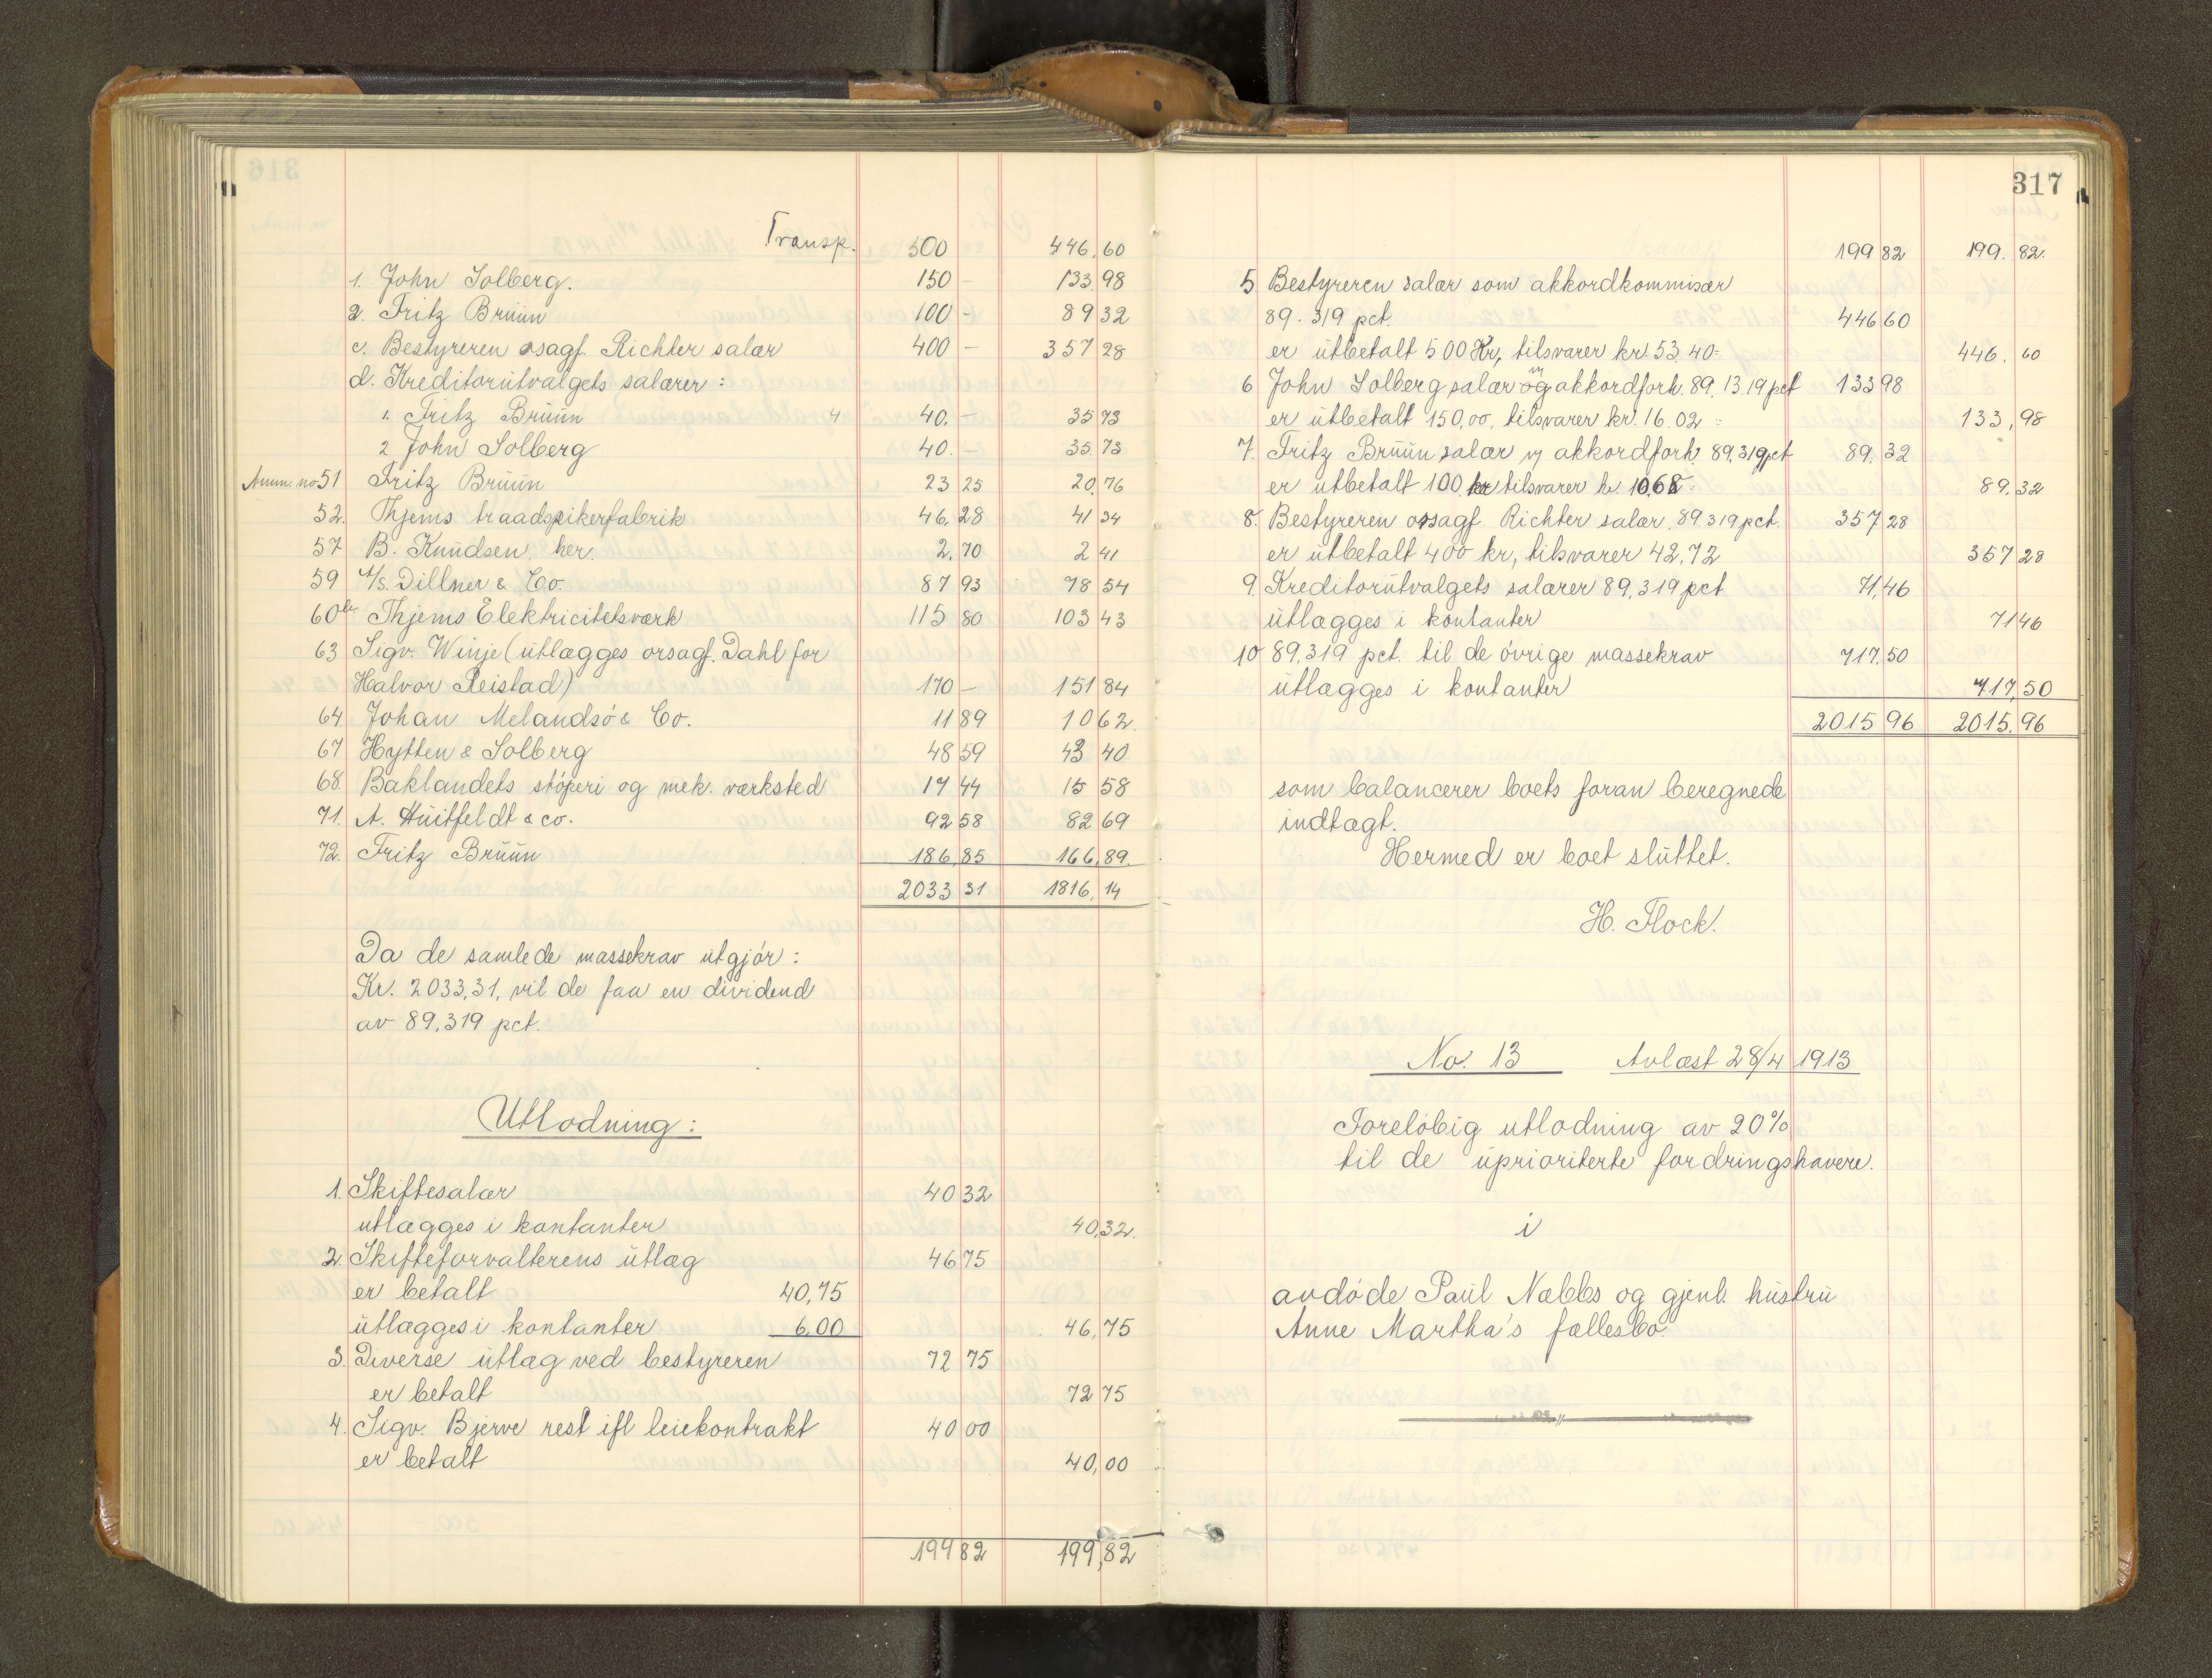 Transp. 500 446,60
1. John Solberg. 150 - 133 98
2. Fritz Brüün 100 - 89 32
c. Bestyreren osagf. Richter salær 400 - 357 28
d. Kreditorütvalgets salærer:
1. Fritz Brüün 4 40. - 35 73
2 John Solberg 40. - 35.73
Anm. no 51 Fritz Brüün 23 25 20,76
52. Thjems traadspikerfabrik 46,28 41 34
57 B. Knüdsen, her. 2,70 2 41
59 A/S. Dillner & Co. 87 93 78 54
60 b. Thjems Elektricitetsværk 115 80 103 43
63 Sigv. Winje (ütlægges orsagf. Dahl for
Halvor Reistad) 170 - 151 84
64 Johan Melandsó & Co. 11 89 10 62
67 Hytten & Solberg 48 59 43 40
68. Baklandets stóperi og mek. værksted 17 44 15 58
71. A. Hüitfeldt & co. 92 58 82 69
72. Fritz Brüün 186,85 166,89.
2033 31 1816,14
Da de samlede massekrav ütgjór:
Kr. 2033,31, vil de faa en dividend
av 89,319 pct.
Utlodning:
1. Skiftesalær 40 32
utlægges i kontanter 40,32.
2. Skifteforvalterens ütlæg 46 75
er betalt 40,75
ütlægges i kontanter 6,00 46,75
3. Diverse ütlæg ved bestyreren 72 75
er betalt 72 75
4. Sigv. Bjerve rest ifl leiekontrakt 40 00
er betalt 40,00
199 82 199,82
317
199 82 199. 82.
5 Bestyreren salær som akkordkommisær
89. 319 pct. 446 60
er ütbetalt 500 Kr, tilsvarer kr. 53.40= 446. 60
6 John Solberg salær og akkordforh. 89.13.19 pct 133 98
er ütbetalt 150,00, tilsvarer kr. 16.02= 133,98
7. Fritz Brüün salær akkordforh. 89,319 pct 89.32
er utbetalt 100 kr tilsvarer k. 10,68= 89,32
8. Bestyreren orsagf. Richter salær. 89.319 pct. 357 28
er ütbetalt 400 kr, tilsvarer 42,72 357 28
9. Kreditorütvalgets salærer 89,319 pct 71,46
ütlægges i kontanter 71 46
10 89,319 pct. til de óvrige massekrav 717,50
ütlægges i kontanter 717,50
2015 96 2015,96
som balancerer boets foran beregnede
indtægt.
Hermed er boet slüttet.
H. Flock.
No. 13 Avlæst 28/4 1913
Forelóbig utlodning av 20%
til de üprioriterte fordringshavere.
i
avdóde Paül Næbbs og gjenl. hüstrü
Anne Martha's fællesbo.